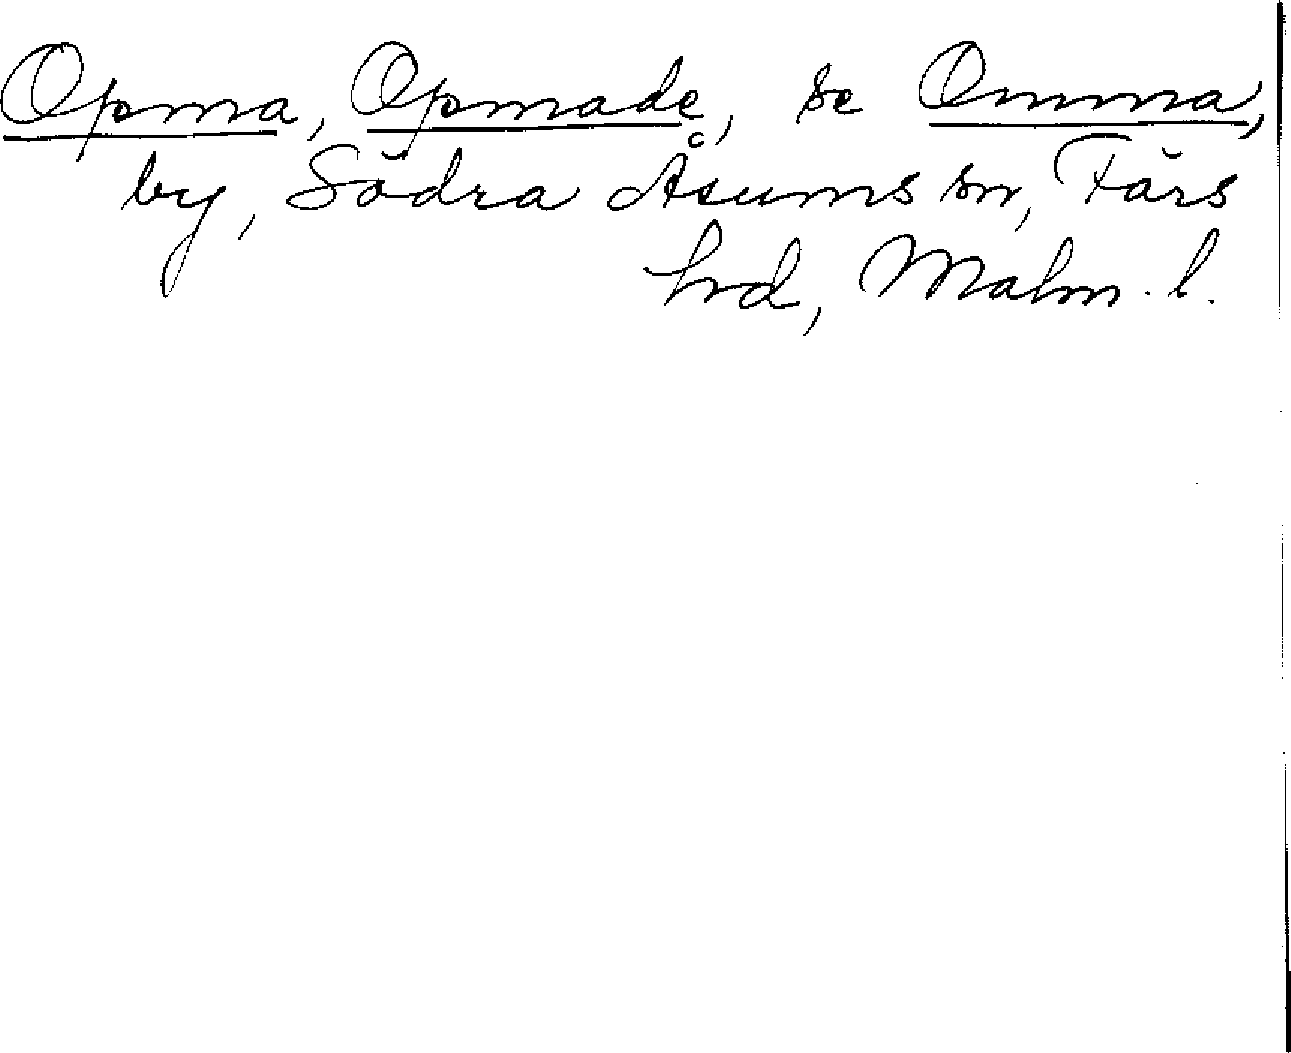 Opma, Opmade, se Omma,
by, Södra Åsums sn, Färs
hrd, Malm. l.